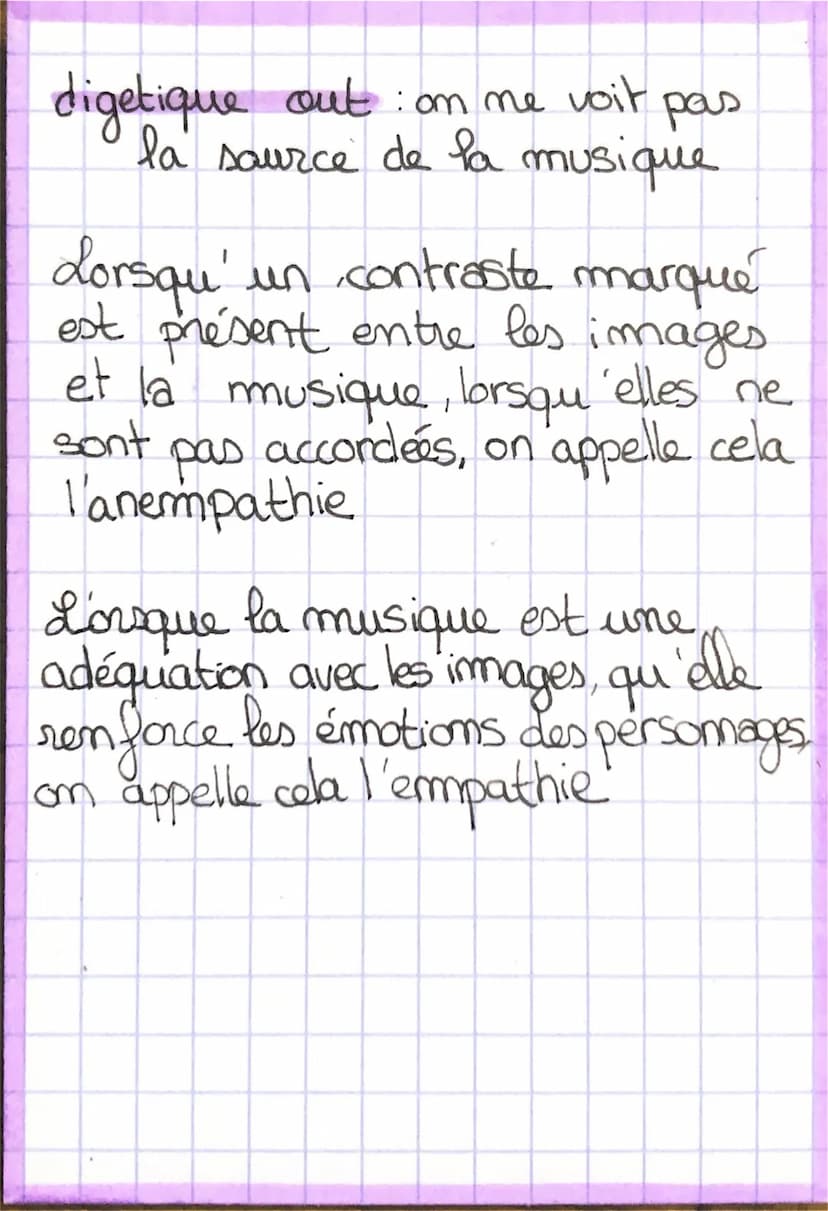 digetique out : on ne voit pas
la source de la musique
Lorsqu'un contraste marqué
est présent entre les images
et la musique, lorsqu'elles ne
sont pas accordées, on appelle cela
l'anempathie
Lorsque la musique est une
adéquation avec les images, qu'elle
renforce les émotions des personnages,
on appelle cela l'empathie